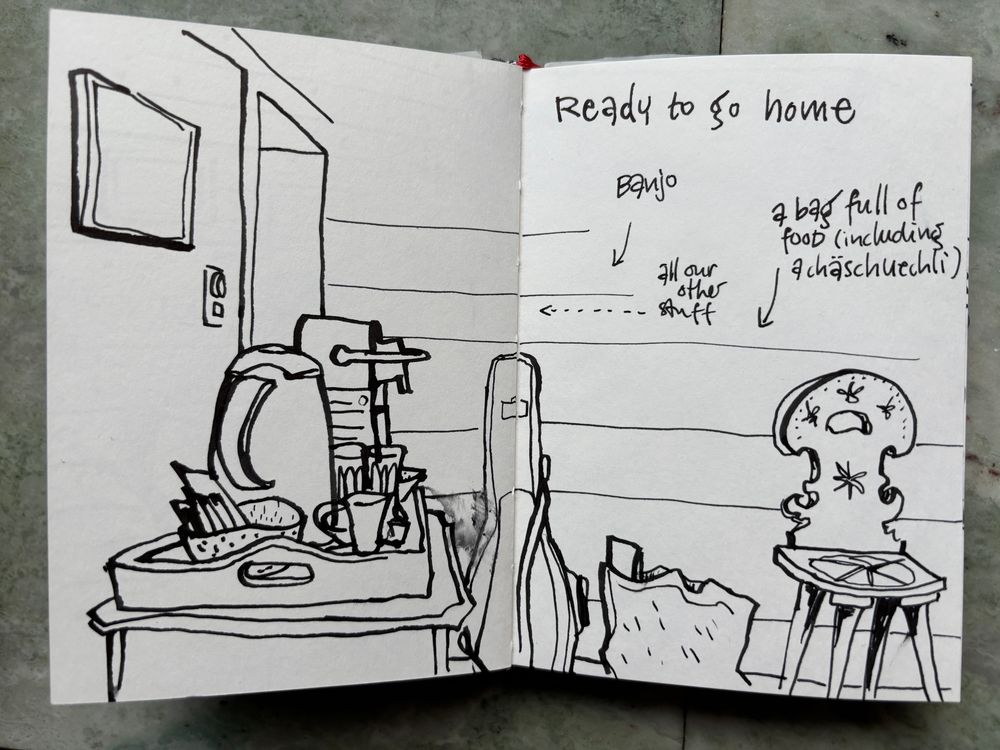 Ready to go home
Banjo
a bag full of
food (including
a chäschuechli)
all our
other
stuff